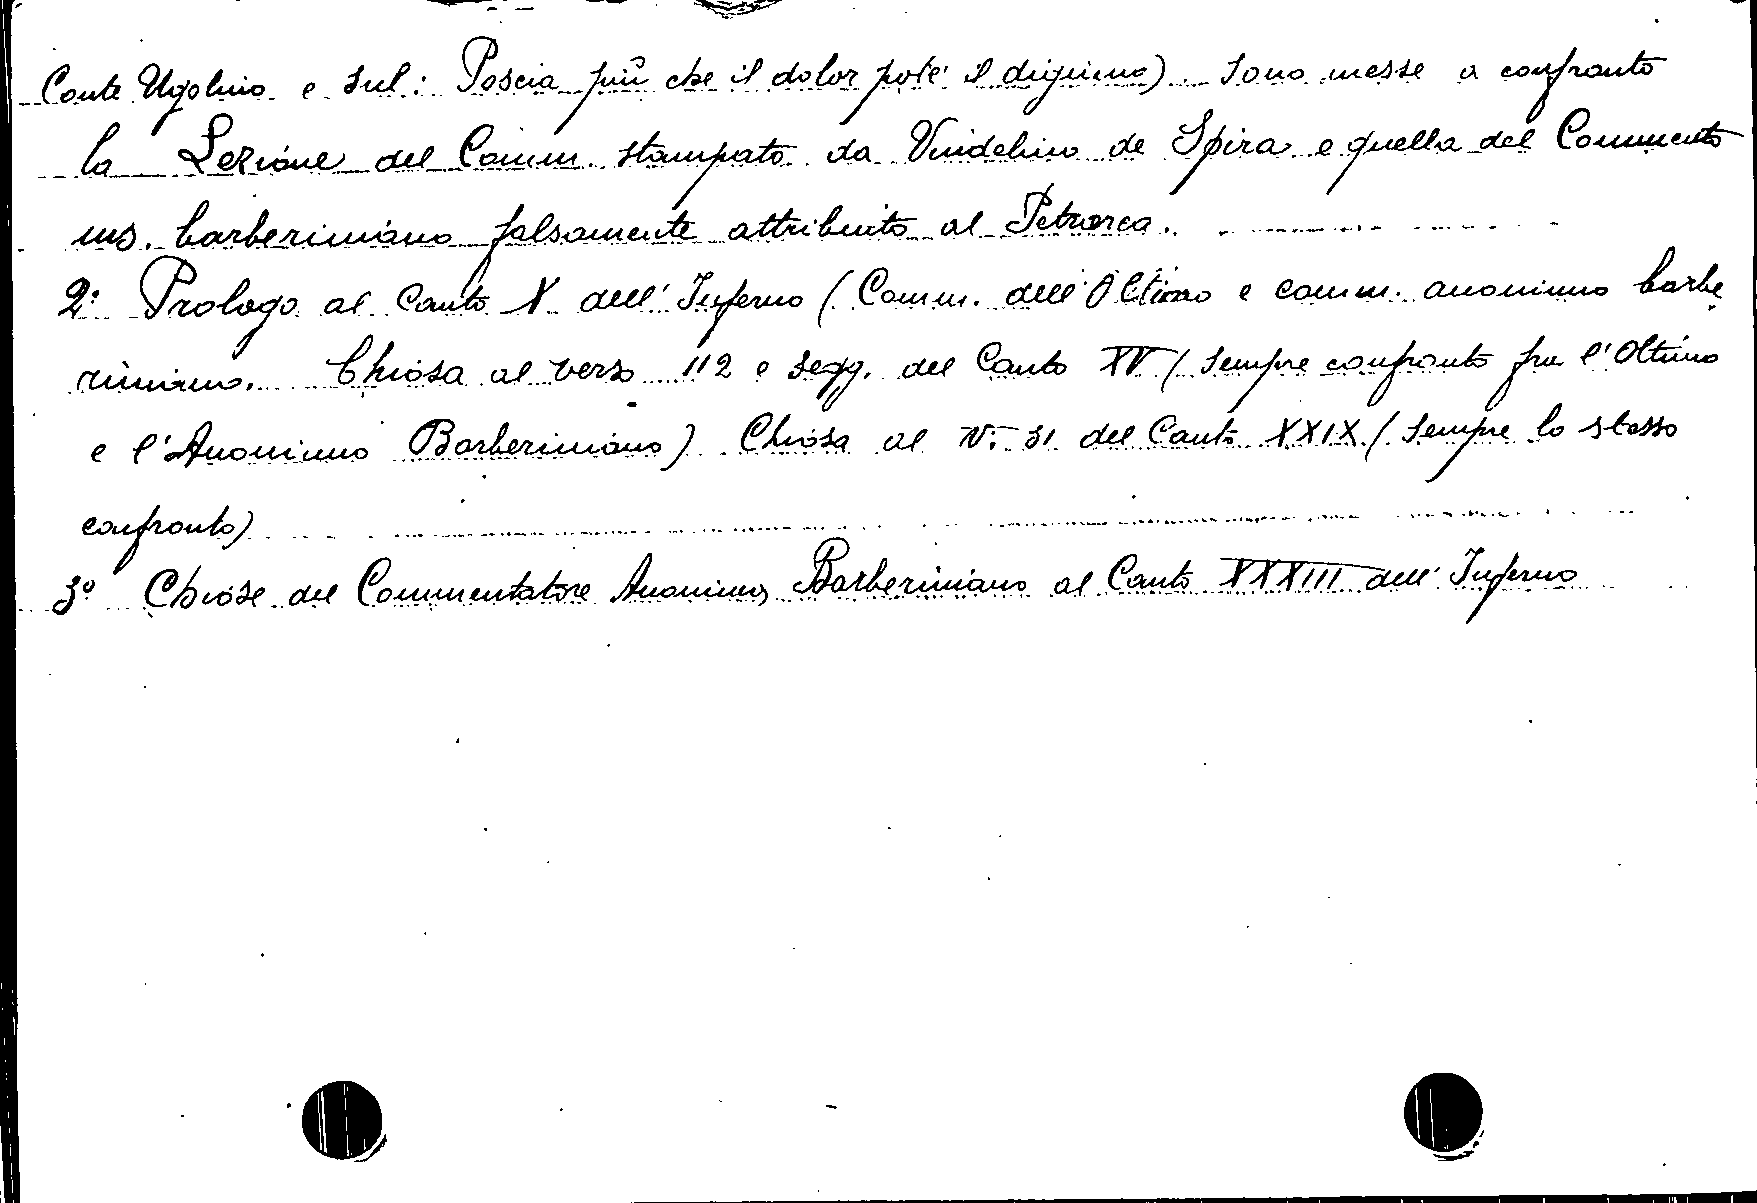 Conte Ugolino e sul: Poscia più che il dolor potè il digiuno). Sono messe a confronto
la Lezione del Comm. stampato da Vindelino de Spira e quella del Commento
ms. barberiniano falsamente attribuito al Petrarca.
2º Prologo al Canto X dell'Inferno (Comm. dell'Ottimo e comm. anonimo barbe
riniano. Chiosa al verso 112 e segg. del Canto XV (sempre confronto fra l'Ottimo
e l'Anonimo Barberiniano) Chiosa al v. 31 del Canto XXIX (sempre lo stesso
confronto)
3º Chiose del Commentatore Anonimo Barberiniano al Canto XXXIII dell'Inferno